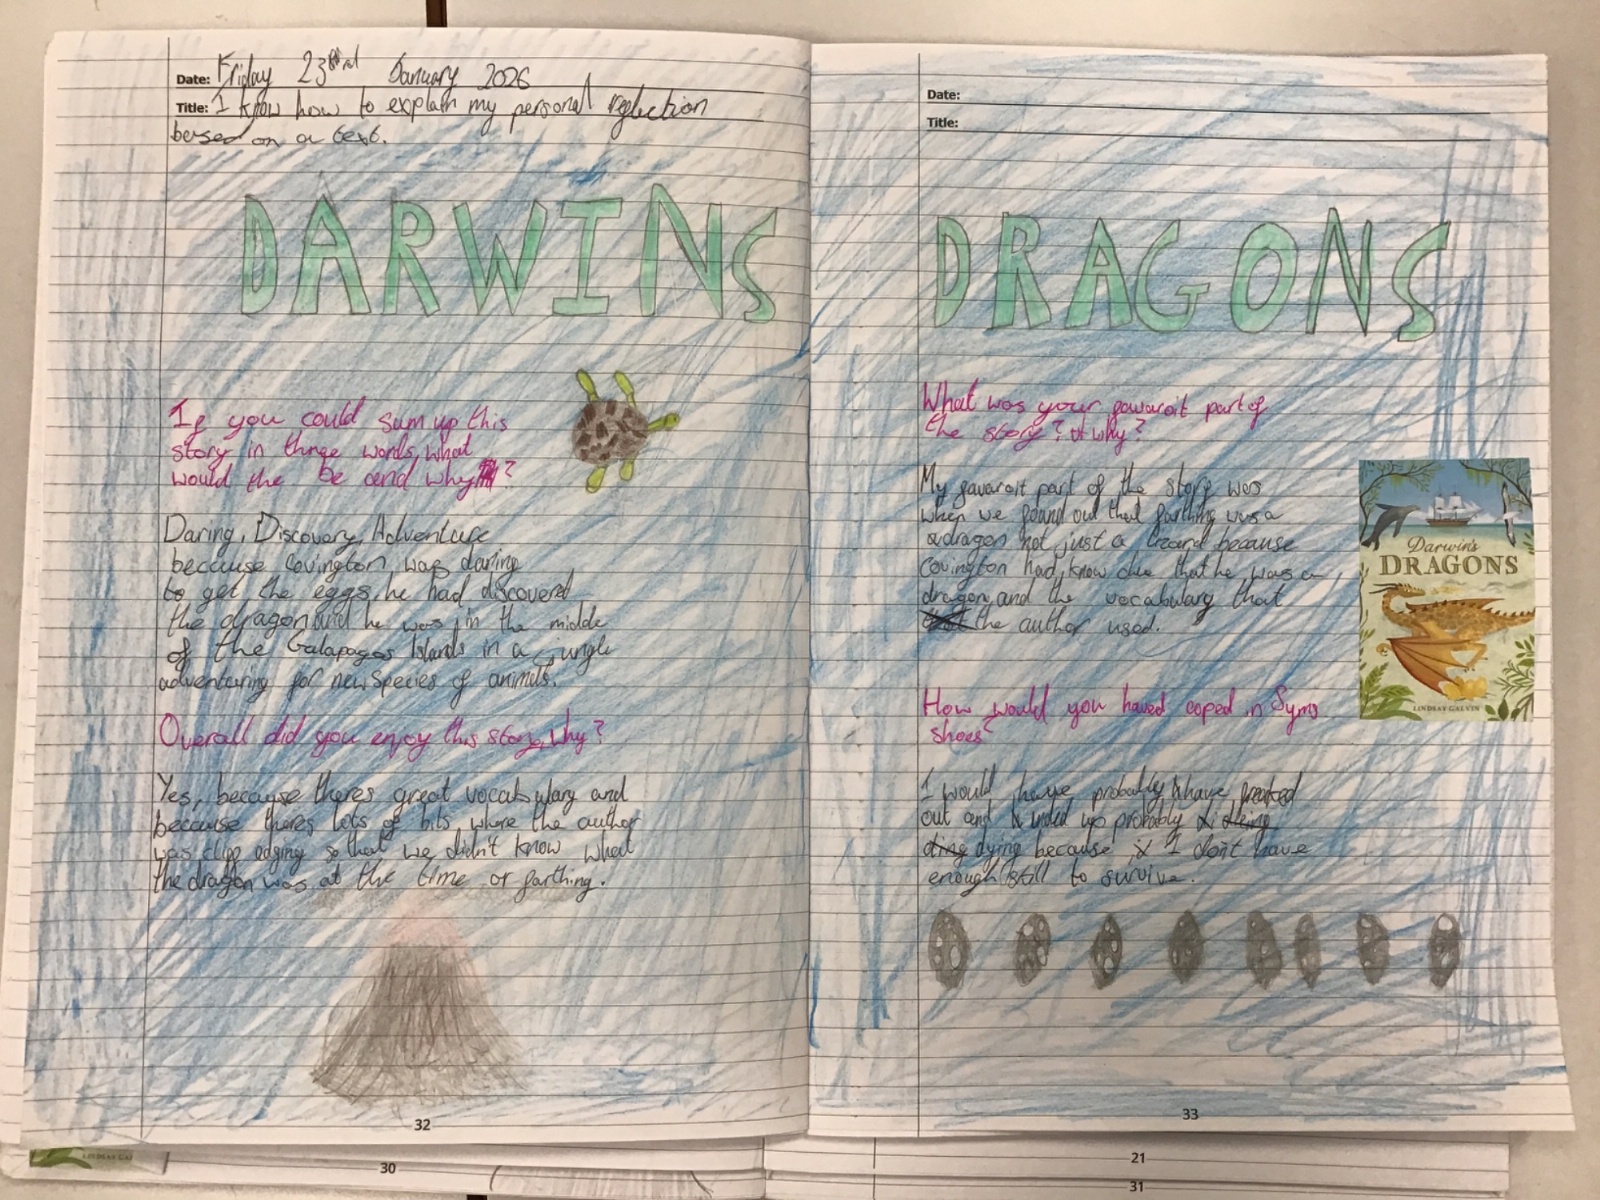 Date: Friday 23rd January 2026
Title: I know how to explain my personal reglection
based on a text.
DARWINS
If you could sum up this
story in three words, what
would the be and why?
Daring, Discovery, Adventure
because Covington was daring
to get the eggs, he had discovered
the dragon and he was in the middle
of the Galapagos Islands in a jungle
adventuring for new species of animals.
Overall did you enjoy this story, why?
Yes, because theres great vocabulary and
because theres lots of bits where the author
was clipp edging so that we didn't know what
the dragon was at the time or farthing.
32
30
LINDSAY GAL
Date:
Title:
DRAGONS
What was your gavarait part of
the story? why?
My gavarait part of the story was
when we found out that farthing was a
dragon not just a lizard because
Covington had know clue that he was a
dragon and the vocabulary that
the author used.
Darwin's
DRAGONS
LINDSAY GALVIN
How would you haved coped in Syms
shoes
I would have probably have freaked
out and ended up probably
dying because I don't have
enough skill to survive.
33
21
31